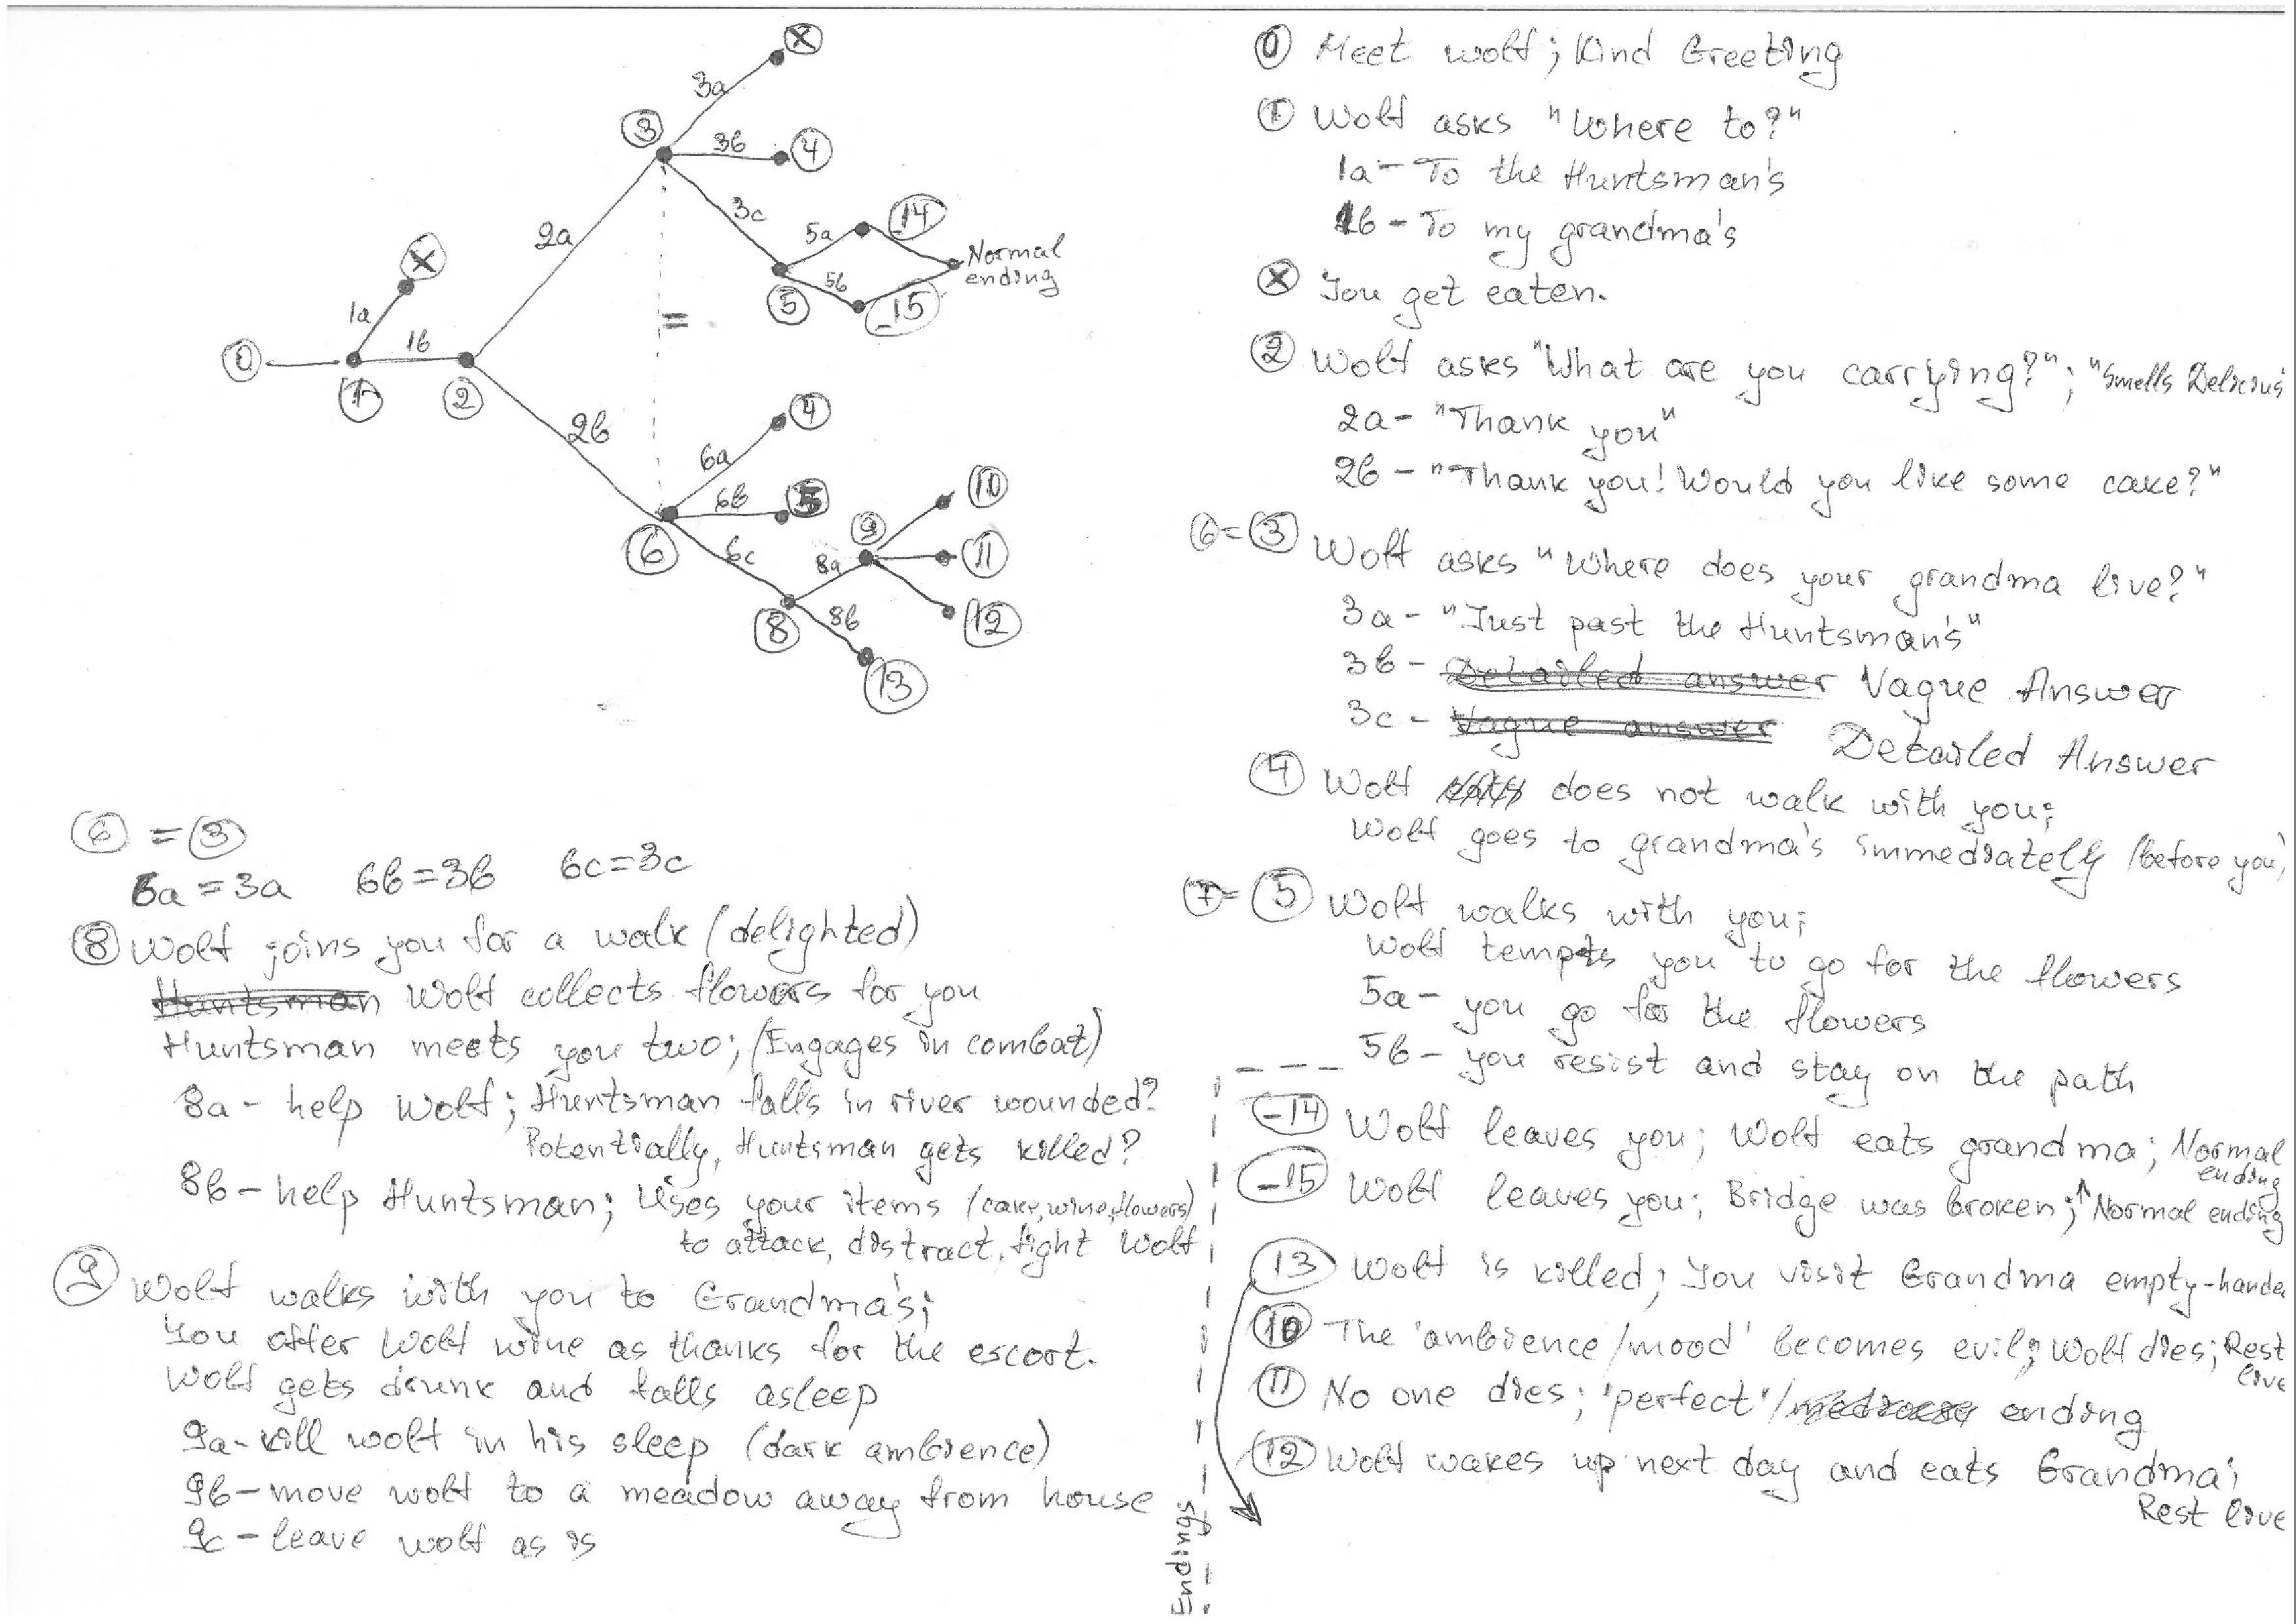 3a
Ⓧ
③
3b
④
3c
2a
5a
-14
Normal
ending
5b
⑤
-15
Ⓧ
1a
=
⓪
1b
①
②
2b
④
6a
6b
⑤
⑩
⑨
⑪
⑥
6c
8a
⑫
⑧
8b
⑬
⑥ = ③
6a = 3a 6b = 3b 6c = 3c
⑧ Wolf joins you for a walk (delighted)
Huntsman Wolf collects flowers for you
Huntsman meets you two; (Engages in combat)
8a - help Wolf; Huntsman falls in river wounded?
Potentially, Huntsman gets killed?
8b - help Huntsman; Uses your items (cake, wine, flowers)
to attack, distract, fight Wolf
⑨ Wolf walks with you to Grandma's;
You offer Wolf wine as thanks for the escort.
Wolf gets drunk and falls asleep
9a - kill wolf in his sleep (dark ambience)
9b - move wolf to a meadow away from house
9c - leave wolf as is
⓪ Meet wolf; Kind Greeting
① Wolf asks "Where to?"
1a - To the Huntsman's
1b - To my grandma's
Ⓧ You get eaten.
② Wolf asks "What are you carrying?"; "Smells Delicius
2a - "Thank you"
2b - "Thank you! Would you like some cake?"
⑥ = ③ Wolf asks "Where does your grandma live?"
3a - "Just past the Huntsman's"
3b - Detailed answer Vague Answer
3c - Vague answer Detailed Answer
④ Wolf does not walk with you;
Wolf goes to grandma's immediately (before you)
⑦ = ⑤ Wolf walks with you;
Wolf tempts you to go for the flowers
5a - you go for the flowers
5b - you resist and stay on the path
-14 Wolf leaves you; Wolf eats grandma; Normal
ending
-15 Wolf leaves you; Bridge was broken; ↑ Normal ending
⑬ Wolf is killed; You visit Grandma empty-hande
⑩ The 'ambience/mood' becomes evil; Wolf dies; Rest
live
⑪ No one dies; 'perfect'/ ending
⑫ Wolf wakes up next day and eats Grandma;
Rest live
Endings